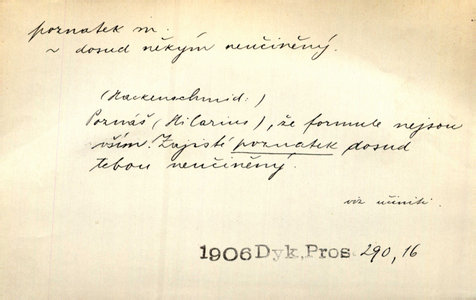 poznatek m.
~ dosud někým neučiněný.
(Hackenschmid:)
Poznáš (Hilarius), že formule nejsou
vším. Zajisté poznatek dosud
tebou neučiněný.
viz učiniti.
1906 Dyk, Pros. 290, 16